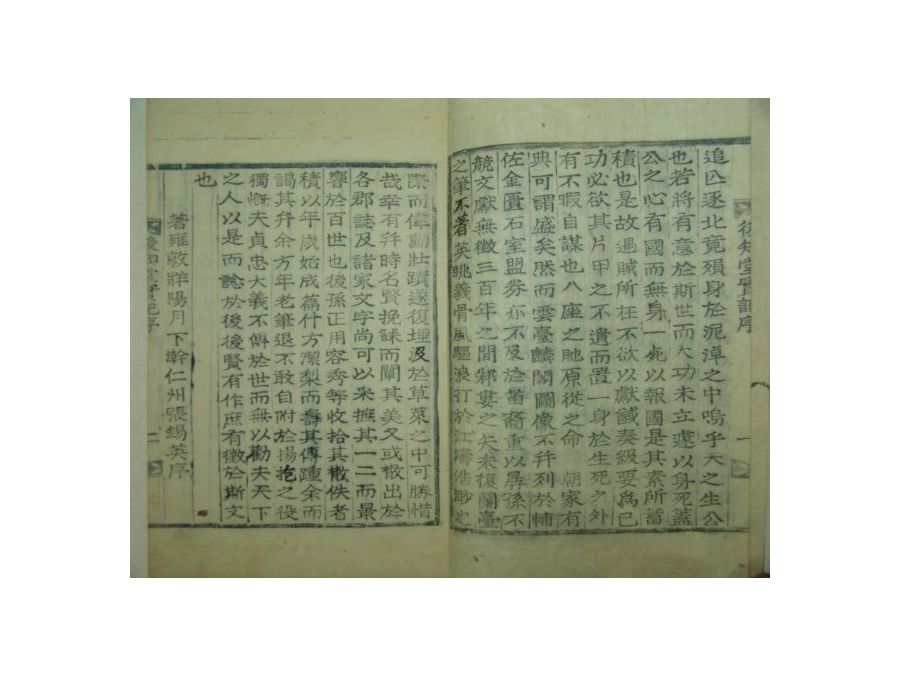 後知堂實記序
追亾逐北竟殞身於泥淖之中嗚乎天之生公
也若將有意於斯世而大功未立遽以身死蓋
公之心有國而無身一死以報國是其素所蓄
積也是故遇賊所在不欲以獻馘奏級要爲己
功必欲其片甲之不遺而置一身於生死之外
有不暇自謀也八座之貤原從之命 朝家有
典可謂盛矣然而雲臺麟閣圖像不幷列於輔
佐金匱石室盟券亦不及於苗裔重以孱孫不
競文獻無徵三百年之間
之筆不著英眺義骨風驅浪打於江濤浩渺之
際而偉勳壯蹟遂復埋汲於草萊之中可勝惜
哉幸有幷時名賢挽誄而闡其美又或散出於
各郡誌及諸家文字尚可以采摭其一二而景
響於百世也後孫正用容秀等收拾其散佚者
積以年歲始成篇什方潔梨而壽其傳踵余而
謁其弁余方年老筆退不敢自附於揚扢之役
獨慨夫貞忠大義不傳於世而無以勸夫天下
之人以是而諗於後後賢有作庶有徵於斯文
也
著雍敦牂陽月下澣仁州張錫英序